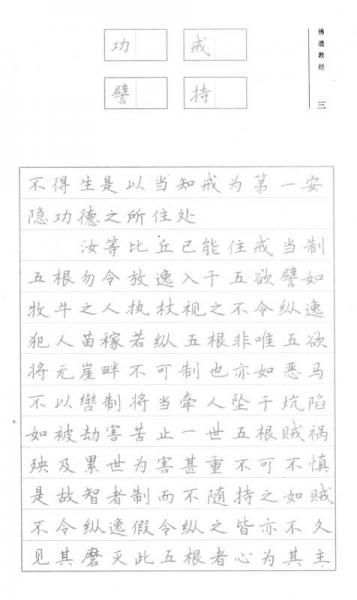 佛遗教经
三
功 戒
譬 持
不得生是以当知戒为第一安
隐功德之所住处
汝等比丘已能住戒当制
五根勿令放逸入于五欲譬如
牧牛之人执杖视之不令纵逸
犯人苗稼若纵五根非唯五欲
将无崖畔不可制也亦如恶马
不以辔制将当牵人坠于坑陷
如被劫害苦止一世五根贼祸
殃及累世为害甚重不可不慎
是故智者制而不随持之如贼
不令纵逸假令纵之皆亦不久
见其磨灭此五根者心为其主